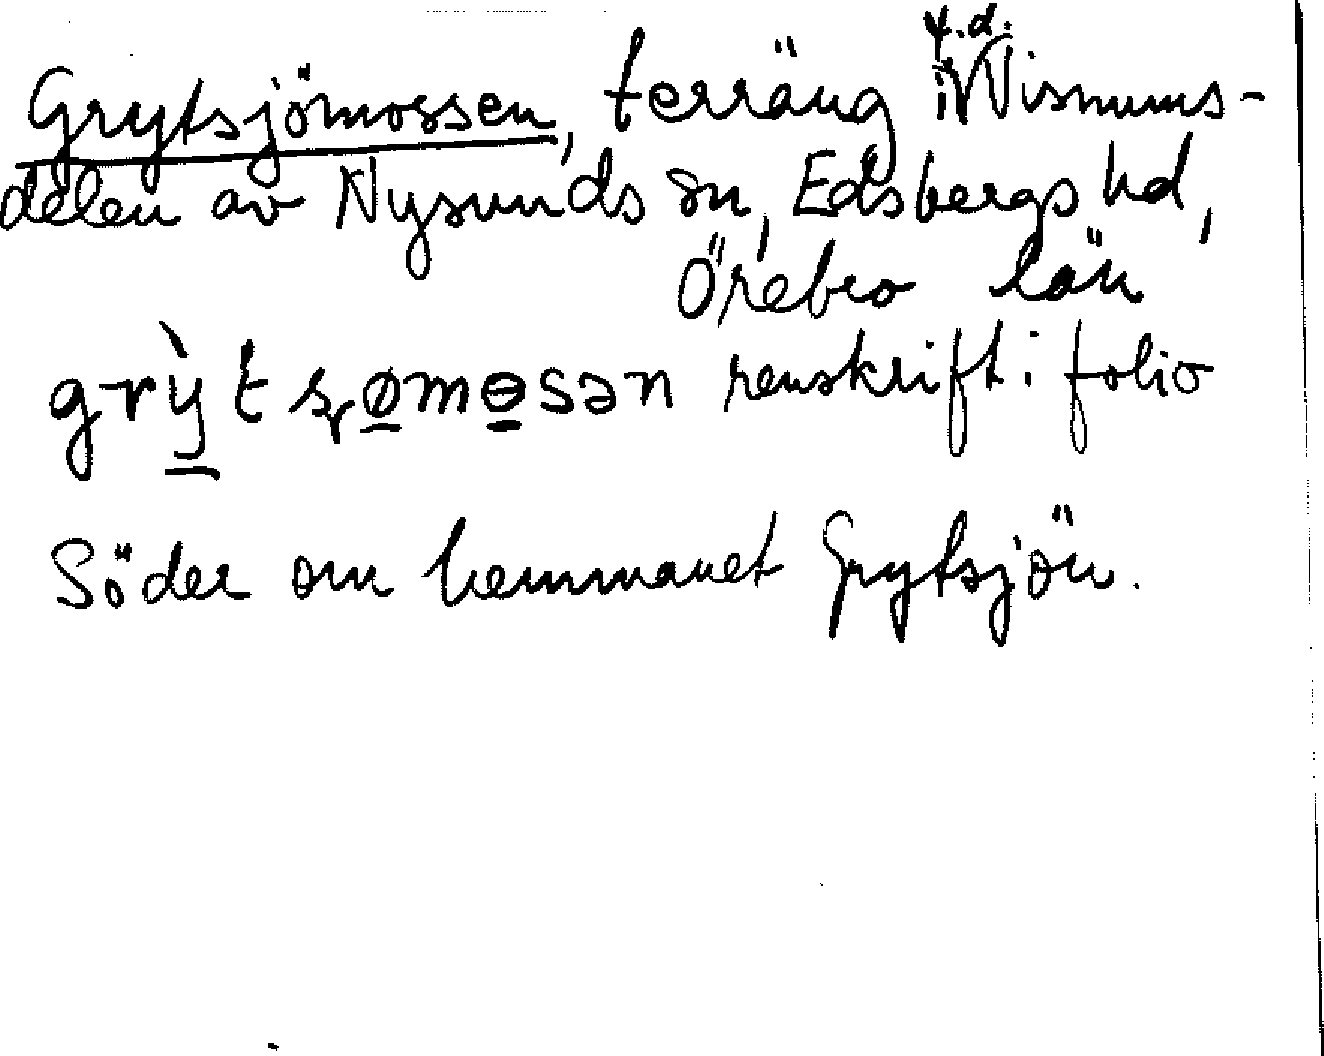 Grytsjömossen, terräng i f.d. Wismums-
delen av Nysunds sn, Edsbergs hd,
Örebro län
renskrift i folio
Söder om hemmanet Grytsjön.